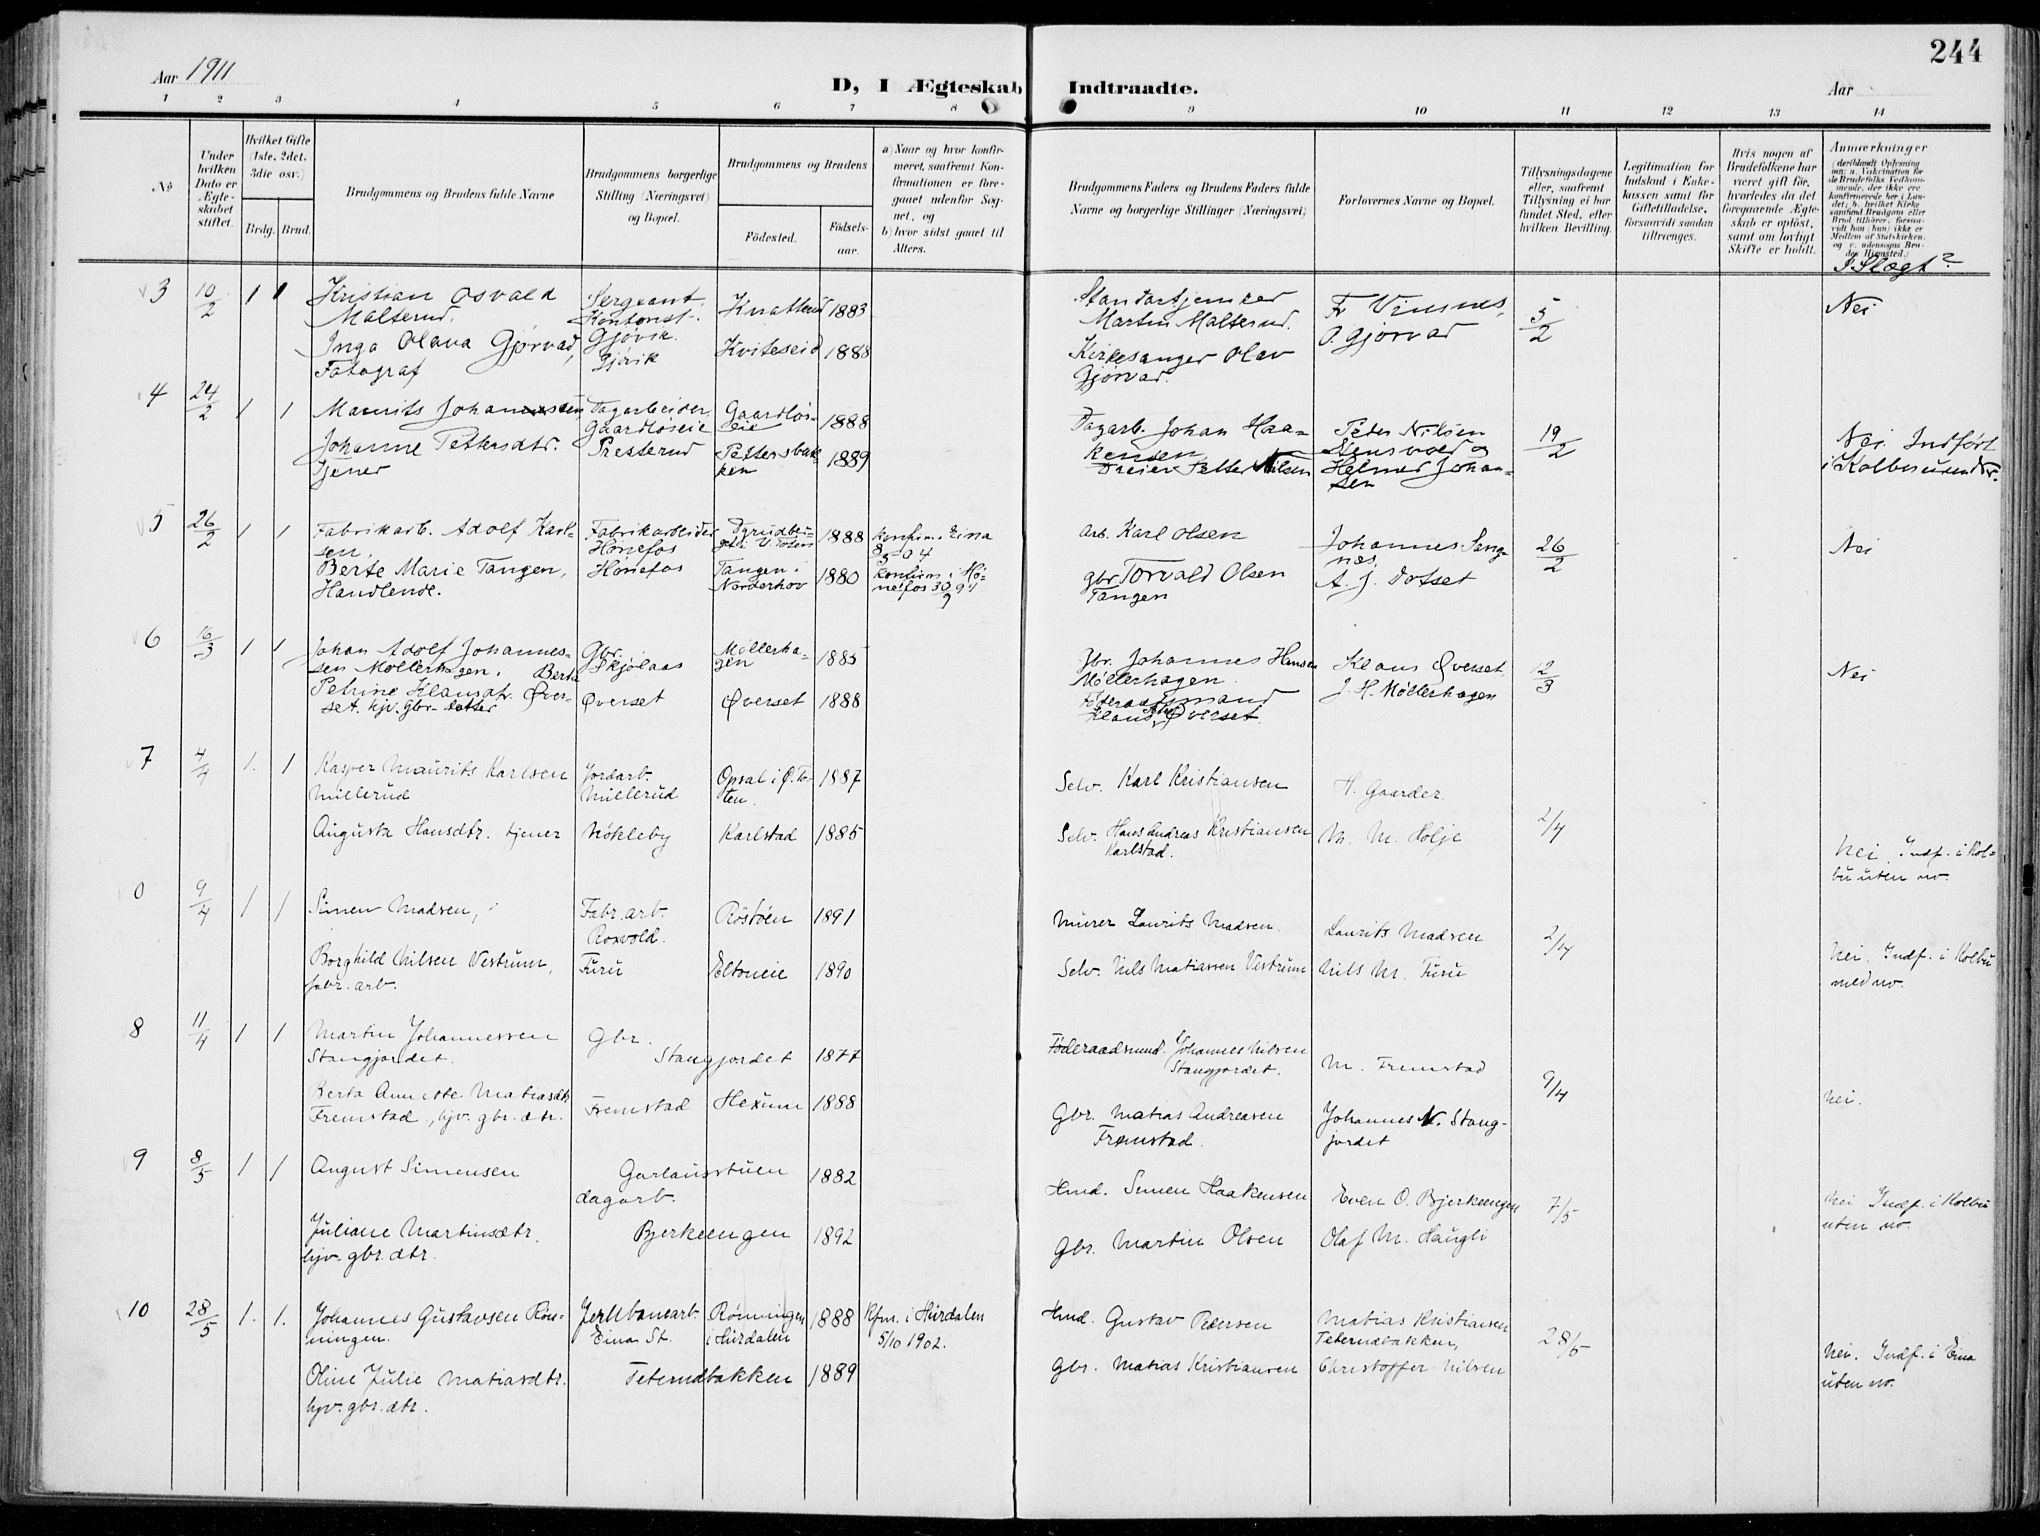 244
Aar 1911
D, I Ægteskab Indtraadte.
Aar
1 2 3 4 5 6 7 8 9 10 11 12 13 14
No
Under hvilken Dato er Ægteskabet stiftet.
Hvilket Gifte (1ste, 2det, 3die osv.)
Brdg. Brud.
Brudgommens og Brudens fulde Navne
Brudgommens borgerlige Stilling (Næringsvei) og Bopæl.
Brudgommens og Brudens
Fødested.
Fødselsaar.
a) Naar og hvor konfirmeret, saafremt Konfirmationen er foregaaet udenfor Sognet, og
b) hvor sidst gaaet til Alters.
Brudgommens Faders og Brudens Faders fulde Navne og borgerlige Stillinger (Næringsvei)
Forlovernes Navne og Bopæl.
Tillysningsdagene eller, saafremt Tillysning ei har fundet Sted, efter hvilken Bevilling.
Legitimation for Indskud i Enkekassen samt for Giftetilladelse, forsaavidt saadan tiltrænges.
Hvis nogen af Brudefolkene har været gift før, hvorledes da det foregaaende Ægteskab er opløst, samt om lovligt Skifte er holdt.
Anmærkninger
I Slægt?
3 10/2 1 1
Kristian Osvald
Malterud.
Sergeant,
Kontorist.
Gjøvik.
Knatterud 1883
Standartjunker
Martin Malterud.
Fr Vinnes,
O. Gjørvad
5/2
Nei
Inga Olava Gjørvad,
Fotograf
Gjøvik
Kviteseid 1888
Kirkesanger Olav
Gjørvad.
4 24/2 1 1
Maurits Johannessen
Dagarbeider
Gaardløseie
Gaardløseie 1888
Dagarb. Johan Haakensen
Peder Nilsen
Stensvold og
Helmer Johansen
19/2
Nei Indført
i Kolbu uten Nr.
Johanne Pettersdtr.
tjener
Presterud
Pettersbakken 1889
Dreier Petter Nilsen
5 26/2 1 1
Fabrikarb. Adolf Karlsen.
Fabrikarbeider
Hønefos
1888
konfirm. i Eina
Arb. Karl Olsen
26/2
Nei
Berte Marie Tangen,
Handlende.
Hønefos
Tangen i
Norderhov
1880
konfirm. i Hønefos 30/9 94
gbr Torvald Olsen
Tangen
A. J. Dotset
6 16/3 1 1
Johan Adolf Johannessen Møllerhagen.
Gbr.
Skjølaas
Møllerhagen 1885
Gbr. Johannes Hansen
Møllerhagen.
Klaus Øverset,
J. H. Møllerhagen
12/3
Nei
Berta
Petrine Klausdtr. Øverset. hjv. gbr-datter
Øverset
Øverset 1888
Føderaadsmand
Klaus Øverset.
7 4/4 1. 1
Kasper Maurits Karlsen
Millerud
Jordarb.
Millerud
Opsal i Ø. Toten. 1887
Selv. Karl Kristiansen
H. Gaarder.
2/4
Augusta Hansdtr. tjener
Nökleby
Karlstad 1885
Selv. Hans Andreas Kristiansen
Karlstad.
M. M. Holje
Nei. Indf. i Kolbu uten no.
0 9/4 1 1
Simen Madsen,
Fabr. arb.
Roxvold.
Röstöen 1891
Murer Laurits Madsen.
Laurits Madsen
2/4
Borghild Nilsen Vestrum,
fabr. arb.
Furu
Eltoneie 1890
Selv. Nils Matiassen Vestrum
Nils M. Furu
Nei. Indf. i Kolbu
med no.
8 11/4 1 1
Martin Johannessen
Stangjordet.
Gbr.
Stangjordet 1877
Föderaadsmand. Johannes Nilsen
Stangjordet.
M. Fremstad
9/4
Nei.
Berta Annette Matiasdtr
Fremstad, hjv. gbr. dtr.
Fremstad
Hexum 1888
Gbr. Matias Andreasen
Fremstad.
Johannes N. Stangjordet
9 8/5 1 1
August Simensen
Garlausstuen
dagarb.
1882
Hmd. Simen Haakensen
Even O. Bjerkeengen
7/5
Nei Indf. i Kolbu
uten no.
Juliane Martinsdtr.
hjv. gbr. dtr.
Bjerkeengen 1892
Gbr. Martin Olsen
Olaf M. Haugli
10 28/5 1. 1.
Johannes Gustavsen Rönningen.
Jernbanearb.
Eina St.
Rönningen
i Hurdalen
1888
Kfm. i Hurdalen
5/10 1902.
Hmd. Gustav Pedersen
Matias Kristiansen
Teterudbakken,
28/5
Nei. Indf. i Eina
uten no.
Oline Julie Matiasdtr.
hjv. gbr. dtr.
Teterudbakken 1889
Gbr. Matias Kristiansen
Christoffer Nilsen